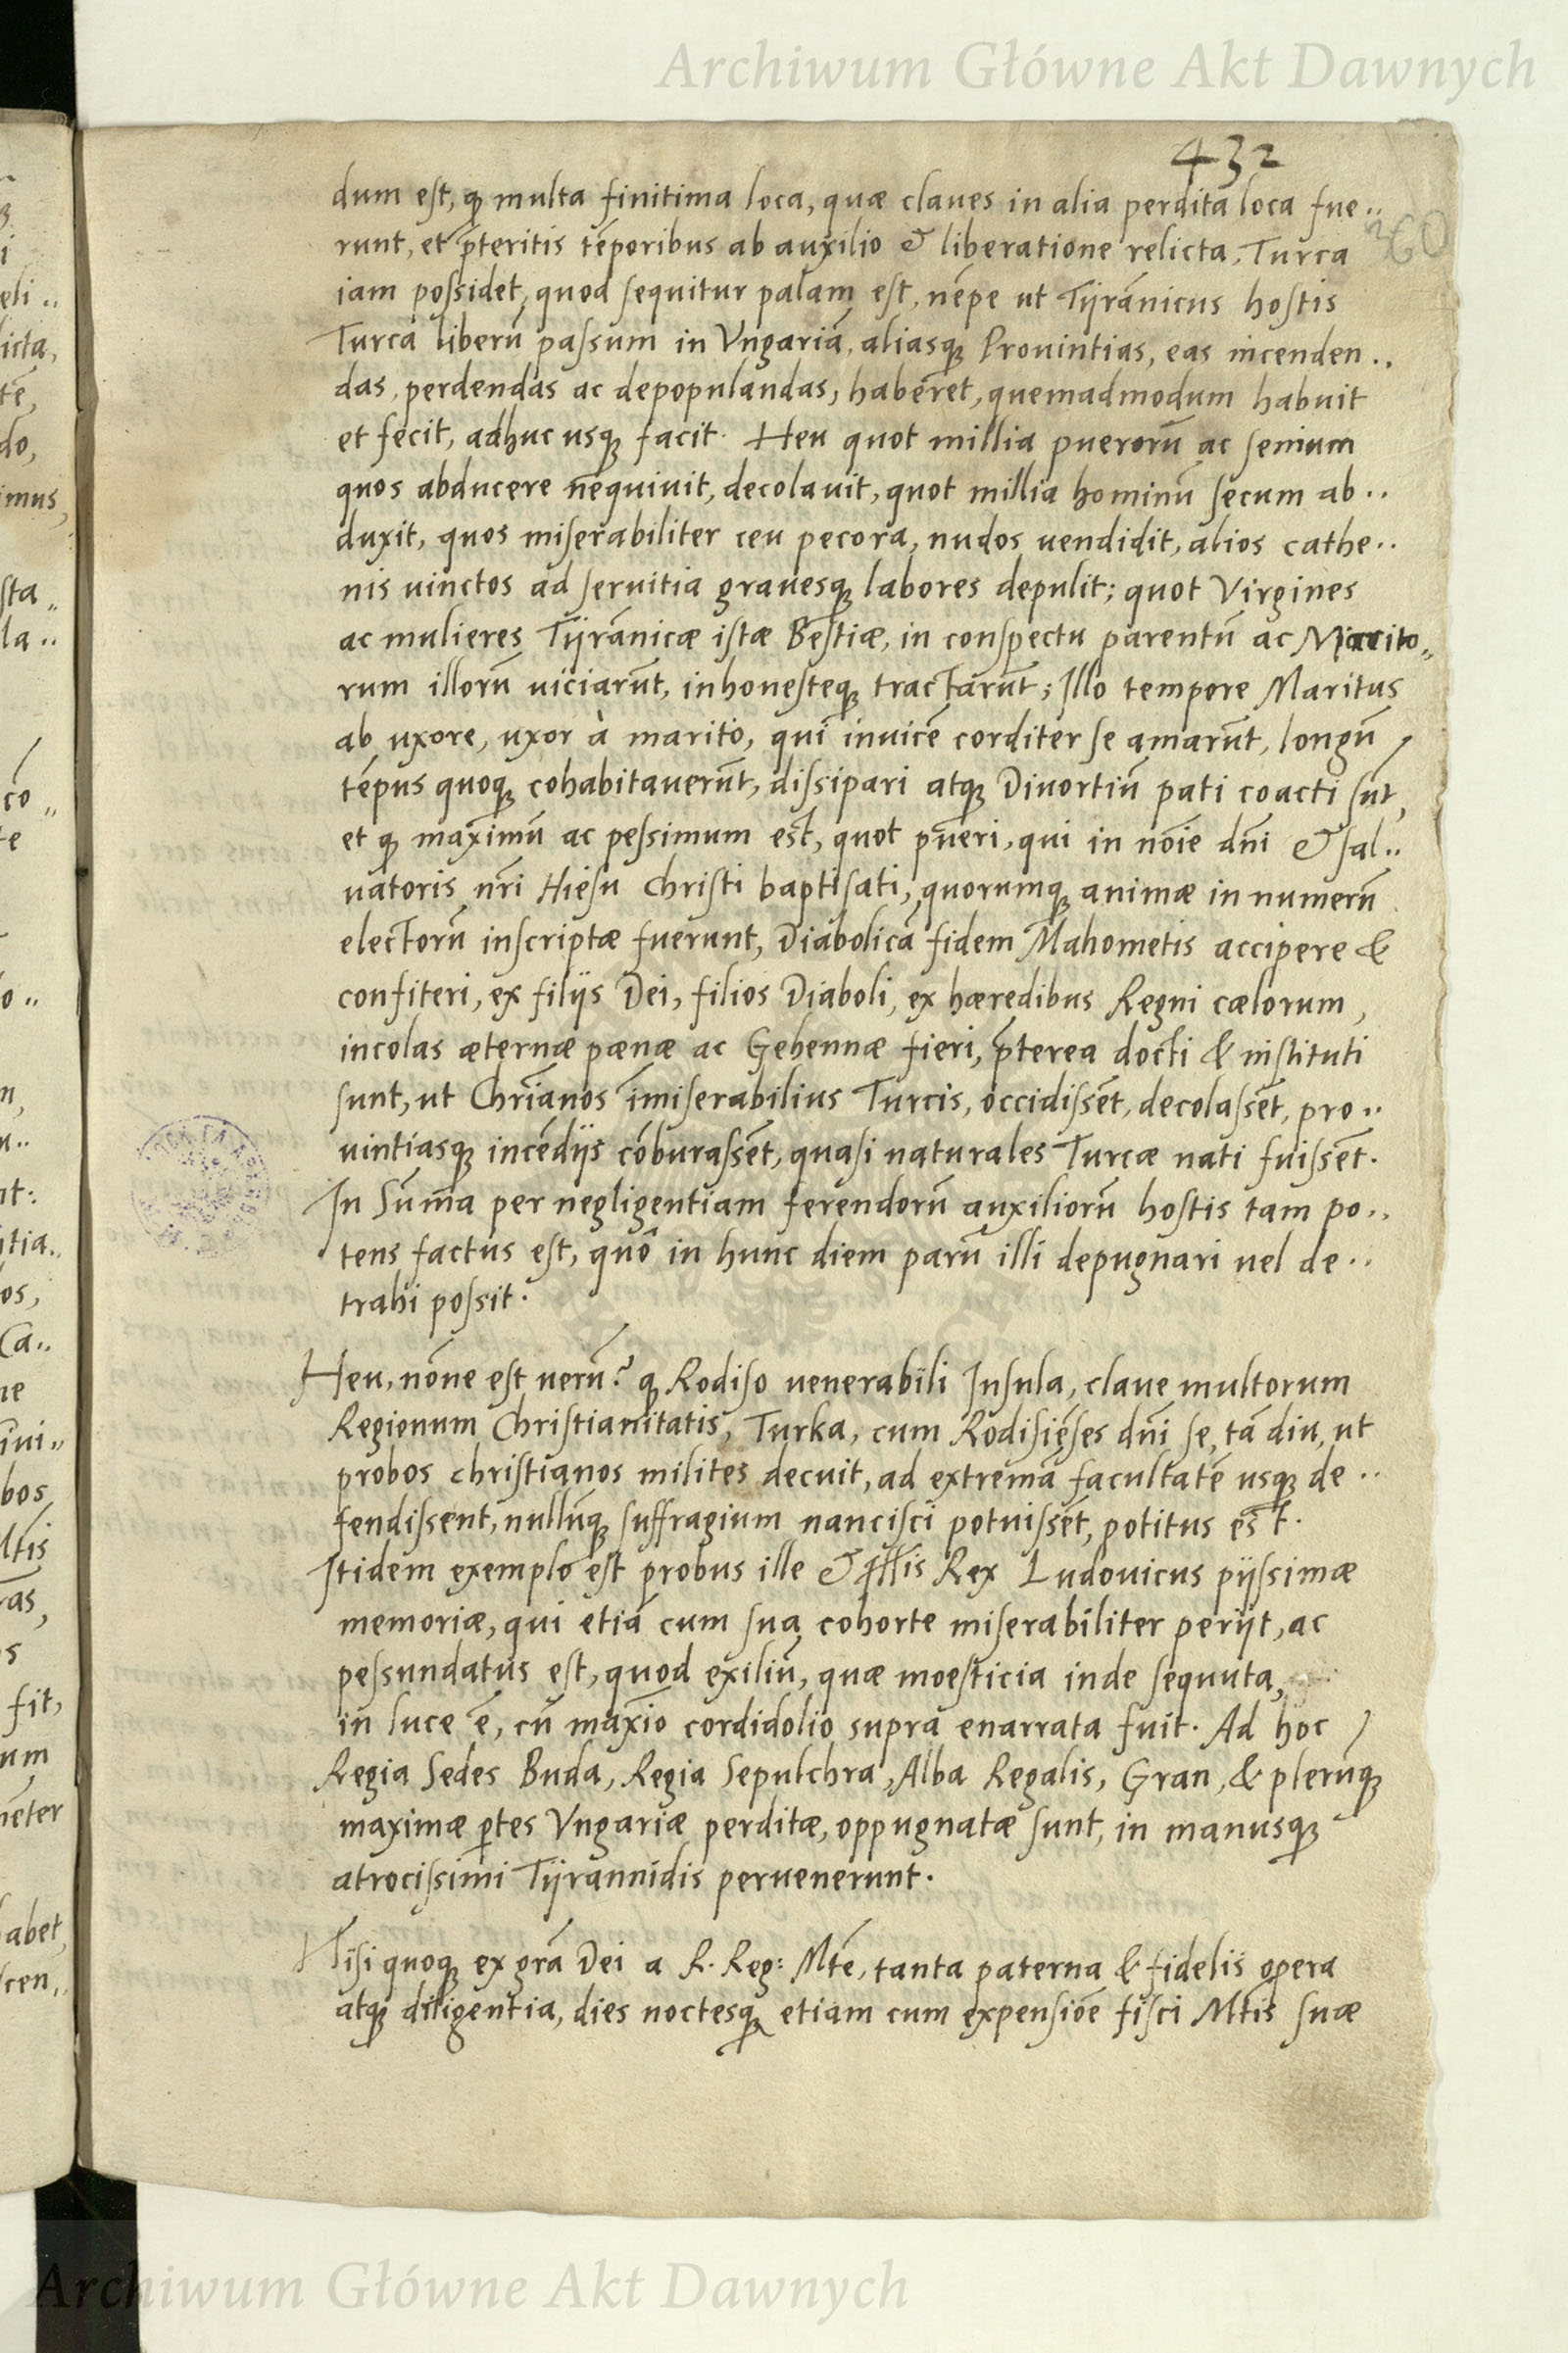 Archiwum Główne Akt Dawnych
432
360
dum est, ꝙ multa finitima loca, quæ claues in alia perdita loca fue..
runt, et p̄teritis tēporibus ab auxilio & liberatione relicta, Turca
iam possidet, quod sequitur palam est, nēpe ut Tÿrānicus hostis
Turca liberū passum in Vngariā, aliasqꝫ Prouintias, eas incenden..
das, perdendas ac depopulandas, haberet, quemadmodum habuit
et fecit, adhuc usqꝫ facit. Heu quot millia puerorū ac senium
quos abducere nequiuit, decolauit, quot millia hominū secum ab..
duxit, quos miserabiliter ceu pecora, nudos uendidit, alios cathe..
nis uinctos ad seruitia grauesqꝫ labores depulit; quot Virgines
ac mulieres Tÿrānicæ istæ Bestiæ, in conspectu parentū ac Marito„
rum illorū uiciarūt, inhonesteqꝫ tractarūt; Illo tempore Maritus
ab uxore, uxor à marito, qui inuicē corditer se amarūt, longū
tēpus quoqꝫ cohabitauerūt, dissipari atqꝫ Diuortiū pati coacti sūt,
et ꝙ maximū ac pessimum est, quot pueri, qui in nōie dn̄i & sal..
uatoris nr̄i Hiesu Christi baptisati, quorumqꝫ animæ in numerū
electorū inscriptæ fuerunt, Diabolicā fidem Mahometis accipere &
confiteri, ex filÿs Dei, filios Diaboli, ex hæredibus Regni cælorum,
incolas æternæ pænæ ac Gehennæ fieri, p̄terea docti & instituti
sunt, ut Chrīanos īmiserabilius Turcis, occidissēt, decolassēt, pro..
uintiasqꝫ incēdÿs cōburassēt, quasi naturales Turcæ nati fuissēt.
In Sūma per negligentiam ferendorū auxiliorū hostis tam po..
tens factus est, quō in hunc diem parū illi depugnari uel de..
trahi possit.
Heu, nōne est uerū? ꝙ Rodiso uenerabili Insula, claue multorum
Regionum Christianitatis, Turka, cum Rodisiēses dn̄i se, tā diu, ut
probos christianos milites decuit, ad extremā facultatē usqꝫ de..
fendissent, nullūqꝫ suffragium nancisci potuissēt, potitus est.
Itidem exemplo est probus ille & Rex Ludouicus pÿssimæ
memoriæ, qui etiā cum sua cohorte miserabiliter perÿt, ac
pessundatus est, quod exiliū, quæ moesticia inde sequuta,
in luce ē, cū maxīo cordidolio supra enarrata fuit. Ad hoc
Regia Sedes Buda, Regia Sepulchra, Alba Regalis, Gran, & plerūqꝫ
maximæ ꝑtes Vngariæ perditæ, oppugnatæ sunt, in manusqꝫ
atrocissimi Tÿrannidis peruenerunt.
Nisi quoqꝫ ex grā Dei a R. Reg: Mtē, tanta paterna & fidelis opera
atqꝫ diligentia, dies noctesqꝫ etiam cum expensiōe fisci Mtis suæ
Archiwum Główne Akt Dawnych